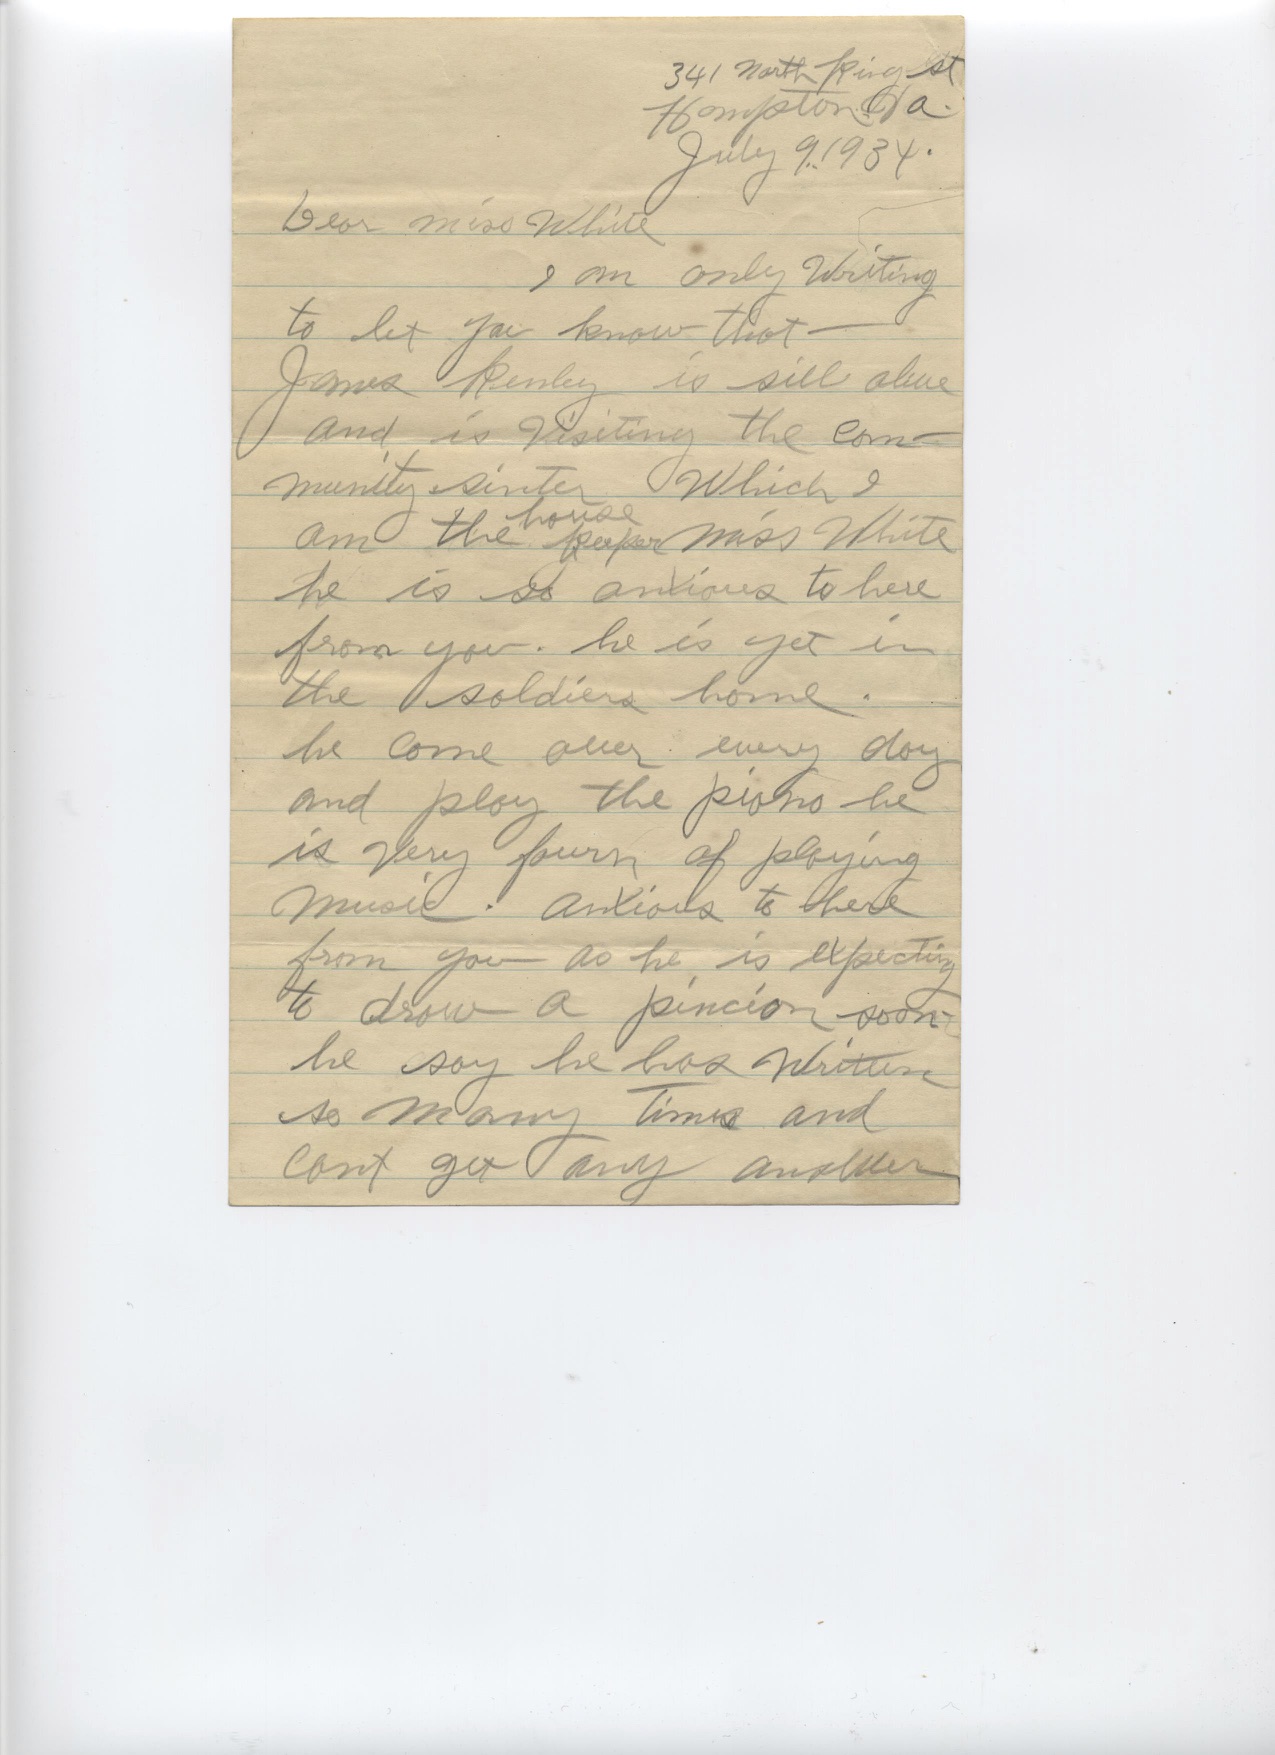 341 North King st
Hampton Va.
July 9, 1934.
Dear miss White
I am only Writing
to let you know that
James is sill alive
and is Visiting the com-
munity sinter Which I
am the house keeper Miss White
he is so anxious to here
from you. he is yet in
the soldiers home.
he come over every day
and play the piano he
is very fourn of playing
Music. anxious to here
from you as he is expecting
to draw a pincion soon
he say he has Written
so Many Times and
cant get any answer